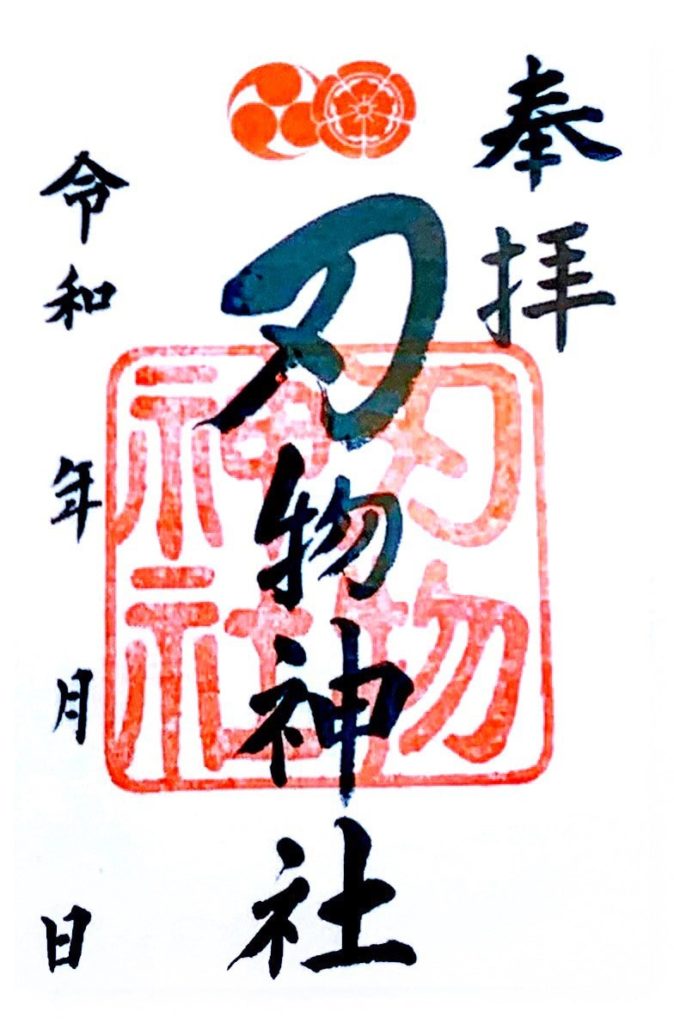 奉拝
刃物神社
刃物神社
令和 年 月 日